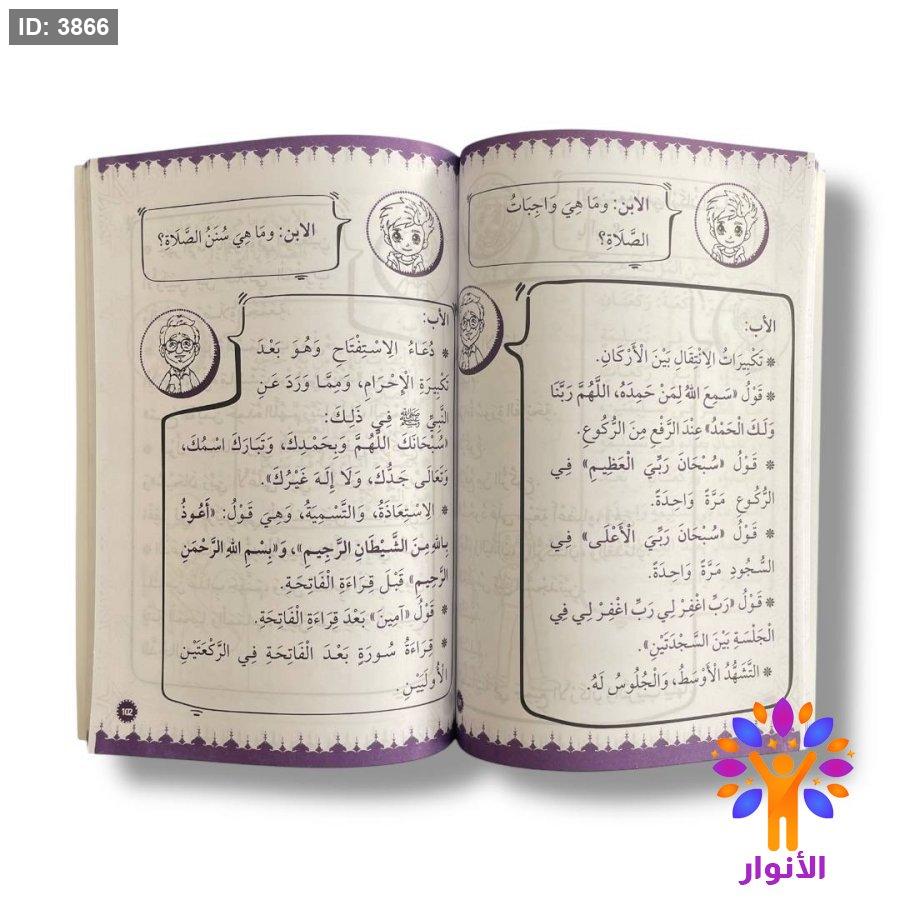 ID: 3866
الابن: ومَا هِيَ وَاجِبَاتُ
الصَّلَاةِ؟
الأب:
* تَكْبِيرَاتُ الِانْتِقَالِ بَيْنَ الْأَرْكَانِ.
* قَوْلُ «سَمِعَ اللهُ لِمَنْ حَمِدَهُ، اللَّهُمَّ رَبَّنَا
وَلَكَ الْحَمْدُ» عِنْدَ الرَّفْعِ مِنَ الرُّكُوعِ.
* قَوْلُ «سُبْحَانَ رَبِّيَ الْعَظِيمِ» فِي
الرُّكُوعِ مَرَّةً وَاحِدَةً.
* قَوْلُ «سُبْحَانَ رَبِّيَ الْأَعْلَى» فِي
السُّجُودِ مَرَّةً وَاحِدَةً.
* قَوْلُ «رَبِّ اغْفِرْ لِي رَبِّ اغْفِرْ لِي فِي
الْجَلْسَةِ بَيْنَ السَّجْدَتَيْنِ».
* التَّشَهُّدُ الْأَوْسَطُ، وَالْجُلُوسُ لَهُ.
الابن: ومَا هِيَ سُنَنُ الصَّلَاةِ؟
الأب:
* دُعَاءُ الِاسْتِفْتَاحِ وَهُوَ بَعْدَ
تَكْبِيرَةِ الْإِحْرَامِ، وَمِمَّا وَرَدَ عَنِ
النَّبِيِّ ﷺ فِي ذَلِكَ:
«سُبْحَانَكَ اللَّهُمَّ وَبِحَمْدِكَ، وَتَبَارَكَ اسْمُكَ،
وَتَعَالَى جَدُّكَ، وَلَا إِلَهَ غَيْرُكَ».
* الِاسْتِعَاذَةُ، وَالتَّسْمِيَةُ، وَهِيَ قَوْلُ: «أَعُوذُ
بِاللهِ مِنَ الشَّيْطَانِ الرَّجِيمِ»، وَ«بِسْمِ اللهِ الرَّحْمَنِ
الرَّحِيمِ» قَبْلَ قِرَاءَةِ الْفَاتِحَةِ.
* قَوْلُ «آمِينَ» بَعْدَ قِرَاءَةِ الْفَاتِحَةِ.
* قِرَاءَةُ سُورَةٍ بَعْدَ الْفَاتِحَةِ فِي الرَّكْعَتَيْنِ
الْأُولَيَيْنِ.
102
الأنوار